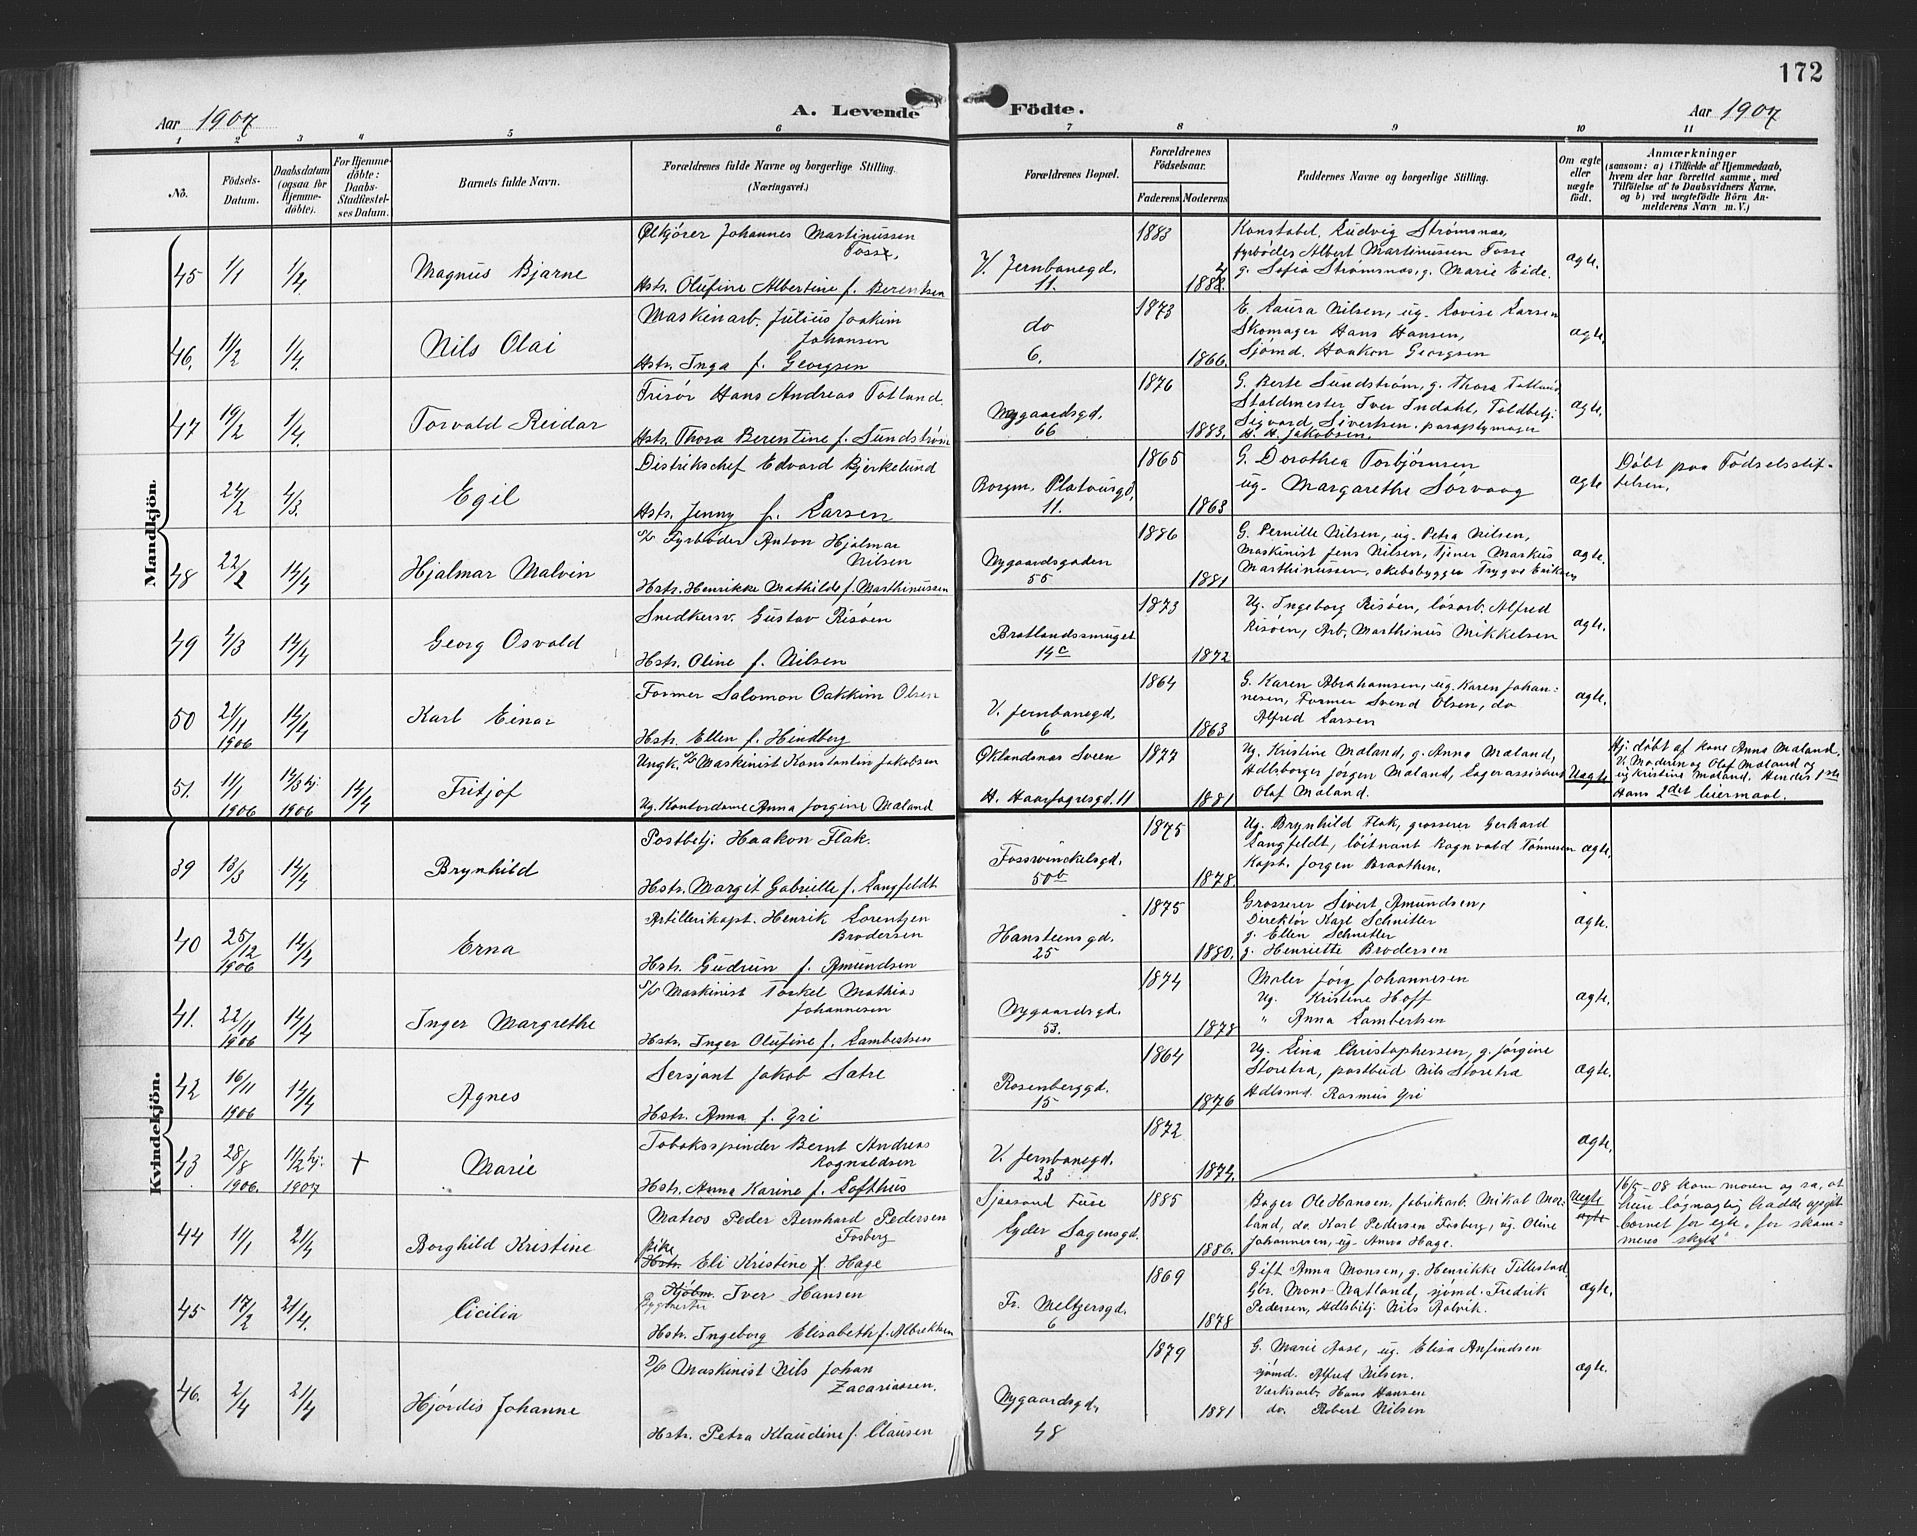 172
Aar 1907
A. Levende Födte.
Aar 1907
1 2 3 4 5 6 7 8 9 10 11
No.
Födsels-Datum.
Daabsdatum (ogsaa for Hjemme-döbte).
For Hjemme-döbte: Daabs-Stadfæstel-ses Datum.
Barnets fulde Navn.
Forældrenes fulde Navne og borgerlige Stilling.
(Næringsvei.)
Forældrenes Bopæl.
Forældrenes Födselsaar.
Faderens Moderens
Faddernes Navne og borgerlige Stilling.
Om ægte eller uægte födt.
Anmærkninger
(saasom: a) i Tilfælde af Hjemmedaab,
hvem der har forrettet samme, med
Tilföielse af to Daabsvidners Navne,
og b) ved uægtefödte Börn An-
melderens Navn m. V.)
Mandkjön.
45 1/1 1/4 Magnus Bjarne
Ølkjører Johannes Martinussen
Fosse,
Hstr. Olufine Albertine f. Berentsen
V. Jernbanegd.
11.
1883
1882.
Konstabel Ludvig Strømsnæs,
fyrbøder Albert Martinussen Fosse
g. Sofia Strømsnæs, g. Marie Eide.
ægte.
46. 11/2 1/4. Nils Olai
Maskinarb. Julius Joakim
Johansen
Hstr. Inga f. Georgsen
do
6.
1873
1866.
E. Laura Nilsen, ug. Lovise Larsen
Skomager Hans Hansen,
Sjømd. Haakon Georgsen
ægte.
47 19/2 1/4. Torvald Reidar
Frisør Hans Andreas Totland.
Hstr. Thora Berentine f. Sundstrøm
Nygaardsgd.
66
1876
1883.
G. Berte Sundstrøm, g. Thora Totland
Staldmester Iver Indahl, Toldbetj.
Sigvard Sivertsen, paraplymager
H. H. Jakobsen.
ægte.
24/2 4/3. Egil
Distrikschef Edvard Bjerkelund
Hstr. Jenny f. Larsen
Borgm. Platousgd.
11.
1865
1863
G. Dorothea Torbjørnsen
ug. Margarethe Sørvaag
ægte
Døbt paa Fødselsstif-
telsen.
48 22/2 14/4 Hjalmar Malvin
Fyrbøder Anton Hjalmar
Nilsen
Hstr. Henrikke Mathilde f. Marthinussen
Nygaardsgaden
55
1886
1881
G. Pernille Nilsen, ug. Petra Nilsen,
Maskinist Jens Nilsen, Tjener Markus
Marthinussen, skibsbygger Trygve Eriksen
ægte.
49 4/3 14/4 Georg Osvald
Snedkersv. Gustav Risøen
Hstr. Oline f. Nilsen
Bratlandssmuget
14c
1873
1872
Ug. Ingeborg Risøen, løsarb. Alfred
Risøen, Arb. Marthinus Mikkelsen
ægte.
50 21/11 1906 14/4 Karl Einar
Former Salomon Oakkim Olsen
Hstr. Ellen f. Hindberg
V. Jernbanegd,
6
1864
1863
G. Karen Abrahamsen, ug. Karen Johan-
nesen, Former Svend Olsen, do
Alfred Larsen
ægte.
51. 11/1 1906 1906 14/4 Fritjof
Ungk. Maskinist Konstantin Jakobsen
Ug. Kontordame Anna Jørgine Mæland
H. Haarfagresgd. 11
1877
1881
Ug. Kristine Mæland, g. Anna Mæland,
Hdlsborger Jørgen Mæland, Lagerassistent
Olaf Mæland.
Uægte
Hj. døbt af kone Anna Mæland,
V. Moderen og Olaf Mæland og
ug Kristine Mæland. Hendes 1ste
Hans 2det leiermaal.
Kvindekjön.
39 13/3 14/4 Brynhild
Postbetj. Haakon Flak.
Hstr. Margit Gabrielle f. Langfeldt
Fosswinckelsgd.
50b
1875
1878.
Ug. Brynhild Flak, grosserer Gerhard
Langfeldt, løitnant Ragnvald Tønnesen
Kapt. Jørgen Braathen.
ægte.
40 25/12 1906 14/4 Erna
Artillerikapt. Henrik Lorentzen
Brodersen
Hstr. Gudrun f. Amundsen
Hansteensgd.
25
1875
1880.
Grosserer Sivert Amundsen,
Direktør Karl Schnitler
g. Ellen Schnitler
g. Henriette Brodersen
ægte.
41. 22/11 1906 14/4 Inger Margrethe
S/S Maskinist Torkel Mathias
Johannesen
Hstr. Inger Olufine f. Lambertsen
Nygaardsgd.
53.
1874
1878
Maler Jørg Johannesen
Ug. Kristine Hoff
" Anna Lambertsen
ægte.
42 16/11 1906 14/4 Agnes
Sersjant Jakob Sætre
Hstr. Anna f. Gri
Rosenberggd.
15
1864
1876
Ug. Lina Christophersen, g. Jørgine
Storetra, postbud Nils Storetra
Hdlsmd. Rasmus Gri
ægte.
43 28/8 1906. 11/2 hj. 1907 + Marie
Tobaksspinder Bernt Andreas
Ragnvaldsen
Hstr. Anna Karine f. Lofthus
V. Jernbanegd.
23
1872
1874.
ægte.
44 11/1 21/4 Borghild Kristine
Matros Peder Bernhard Pedersen
Fosberg
pike
Hstr. Eli Kristine f Hage
Lyder Sagensgd.
8
1885
1886.
Bager Ole Hansen, fabrikarb. Mikal Mor-
land, do. Karl Pedersen Fosberg, ug. Oline
Johannesen, ug. Anna Hage.
Uegte
ægte
16/5-08 kom moren og sa, at
hun løgnagtig hadde opgit
barnet for egte, "for skam-
meres skyld"
45 17/2 21/4. Cicilia
Kjøbm. Iver Hansen
Hstr. Ingeborg Elisabeth f. Albrektsen
Fr. Meltzersgd.
6
1869
1878
Gift Anna Monsen, g. Henrikke Tillestad,
Gbr. Mons Natland, sjømd. Fredrik
Pedersen, Hdlsbtj. Nils Rolvik.
ægte.
46. 2/4 21/4 Hjørdis Johanne
D/S Maskinist Nils Johan
Zacariassen.
Hstr. Petra Klaudine f. Clausen
Nygaardsgd.
48
1879
1881
G. Marie Aase, ug. Elisa Anfindsen
sjømd. Alfred Nilsen.
Værksarb. Hans Hansen
do. Robert Nilsen
ægte.